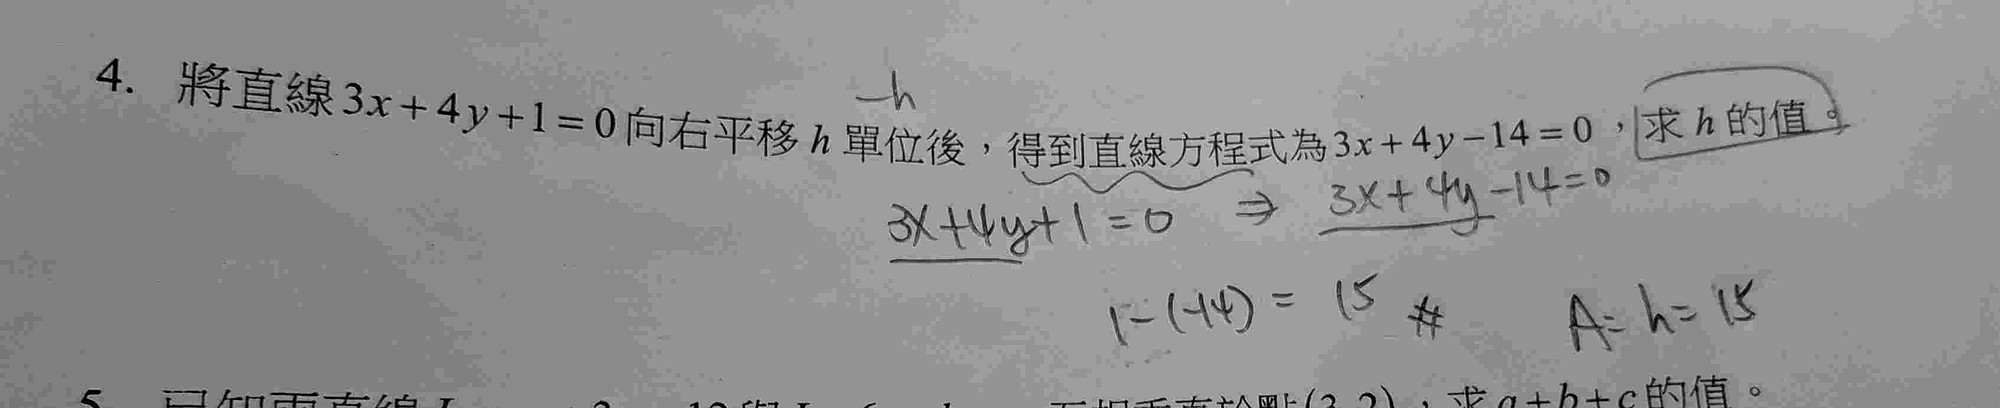 4. 將直線3x+4y+1=0向右平移 h 單位後，得到直線方程式為3x+4y−14=0，求 h 的值。
−h
3x+4y+1=0 ⇒ 3x+4y−14=0
1−(−14)= 15 # A= h= 15
5. 已知兩直線 互相垂直於點(3,2)，求 a+b+c的值。